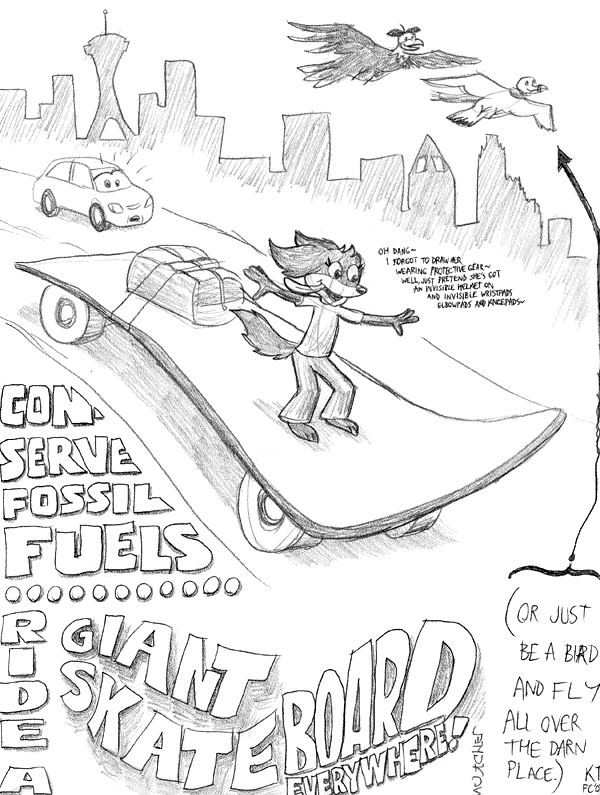 OH DANG~
I FORGOT TO DRAW HER
WEARING PROTECTIVE GEAR~
WELL, JUST PRETEND SHE'S GOT
AN INVISIBLE HELMET ON
AND INVISIBLE WRISTPADS
ELBOWPADS AND KNEEPADS~
CON-
SERVE
FOSSIL
FUELS
RIDE A
GIANT
SKATE
BOARD
EVERYWHERE!
(OR JUST
BE A BIRD
AND FLY
ALL OVER
THE DARN
PLACE.)